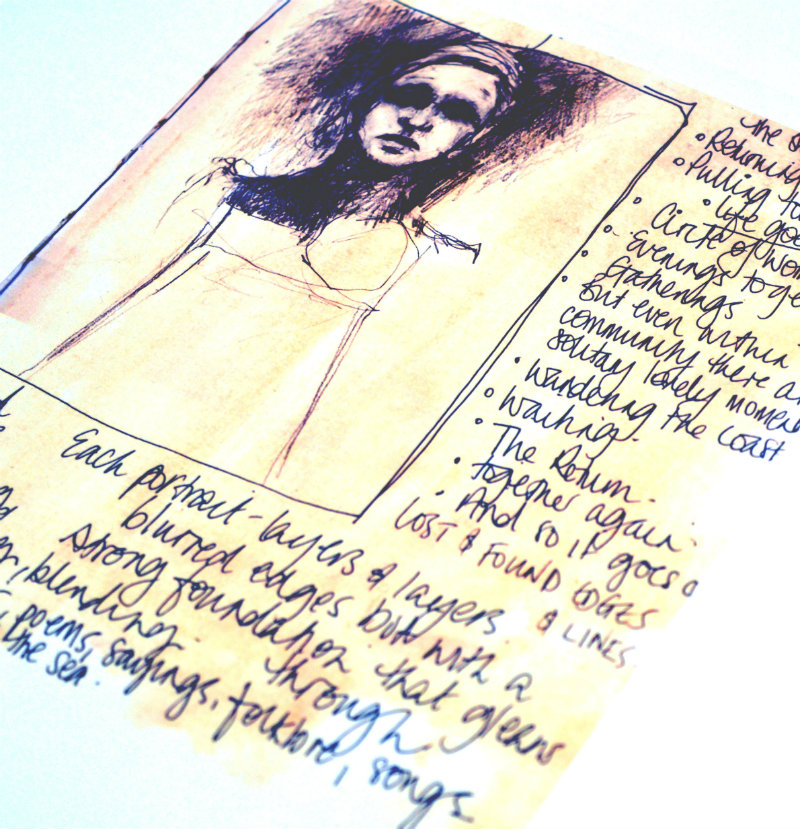 the
• Returning
• Pulling
• life goe
• Circle of wom
• Evenings toge
• Gatherings
But even within
community there a
solitary lonely momen
• wandering the coast
• Waiting.
• The Return.
• together again.
• And so it goes o
LOST & FOUND EDGES
& LINES.
Each portrait - layers & layers
blurred edges but with a
strong foundation that gleans
blending. through
poems, sayings, folklore, songs
the sea.